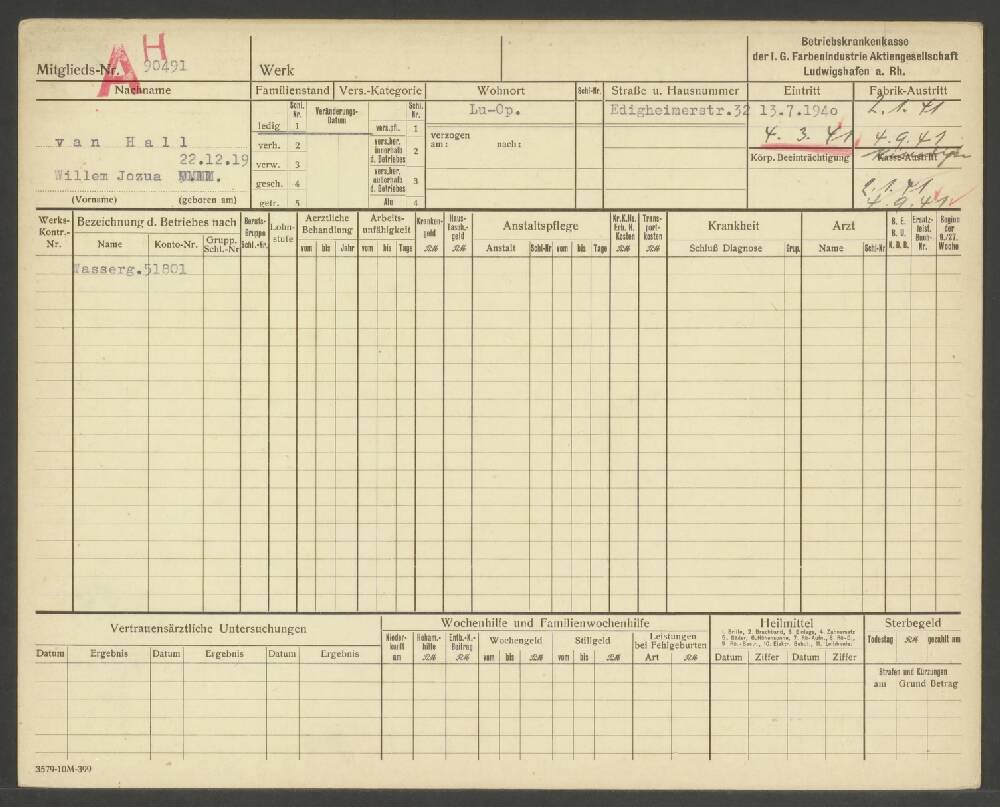 AH
Mitglieds-Nr. 90491
Werk
Betriebskrankenkasse
der I. G. Farbenindustrie Aktiengesellschaft
Ludwigshafen a. Rh.
Nachname
Familienstand
Vers.-Kategorie
Wohnort
Schl-Nr.
Straße u. Hausnummer
Eintritt
Fabrik-Austritt
Schl. Nr.
Veränderungs-Datum
Schl. Nr.
Lu-Op.
Edigheimerstr.32
13.7.1940
2.1.41
ledig 1
vers.pfl. 1
verzogen
am: nach:
4. 3. 41
4.9.41
van Hall
verh. 2
vers.ber. innerhalb d. Betriebes 2
Körp. Beeinträchtigung
Kasse-Austritt
22.12.19
verw. 3
Willem Jozua
gesch. 4
vers.ber. außerhalb d. Betriebes 3
2.1.41
(Vorname) (geboren am)
getr. 5
Alu 4
4.9.41
Werks-Kontr.-Nr.
Bezeichnung d. Betriebes nach
Berufs-Gruppe Schl.-Nr.
Lohn-stufe
Aerztliche Behandlung
Arbeits-unfähigkeit
Kranken-geld RM
Haus-Tasch.-geld RM
Anstaltspflege
Trans-port-kosten RM
Krankheit
Arzt
Ersatz-leist. Buch-Nr.
Beginn der 6./27. Woche
Name Konto-Nr. Grupp. Schl.-Nr.
vom bis Jahr
vom bis Tage
Anstalt Schl-Nr vom bis Tage
Schluß Diagnose Grup.
Name Schl-Nr
Wasserg.51801
Vertrauensärztliche Untersuchungen
Wochenhilfe und Familienwochenhilfe
Heilmittel
Sterbegeld
Nieder-kunft am
Hebam.-hilfe RM
Entb.-K.-Beitrag RM
Wochengeld
Stillgeld
Leistungen bei Fehlgeburten
Todestag RM gezahlt am
Datum Ergebnis Datum Ergebnis Datum Ergebnis
vom bis RM vom bis RM
Art RM
Datum Ziffer Datum Ziffer
Strafen und Kürzungen
am Grund Betrag
3579-10M-399